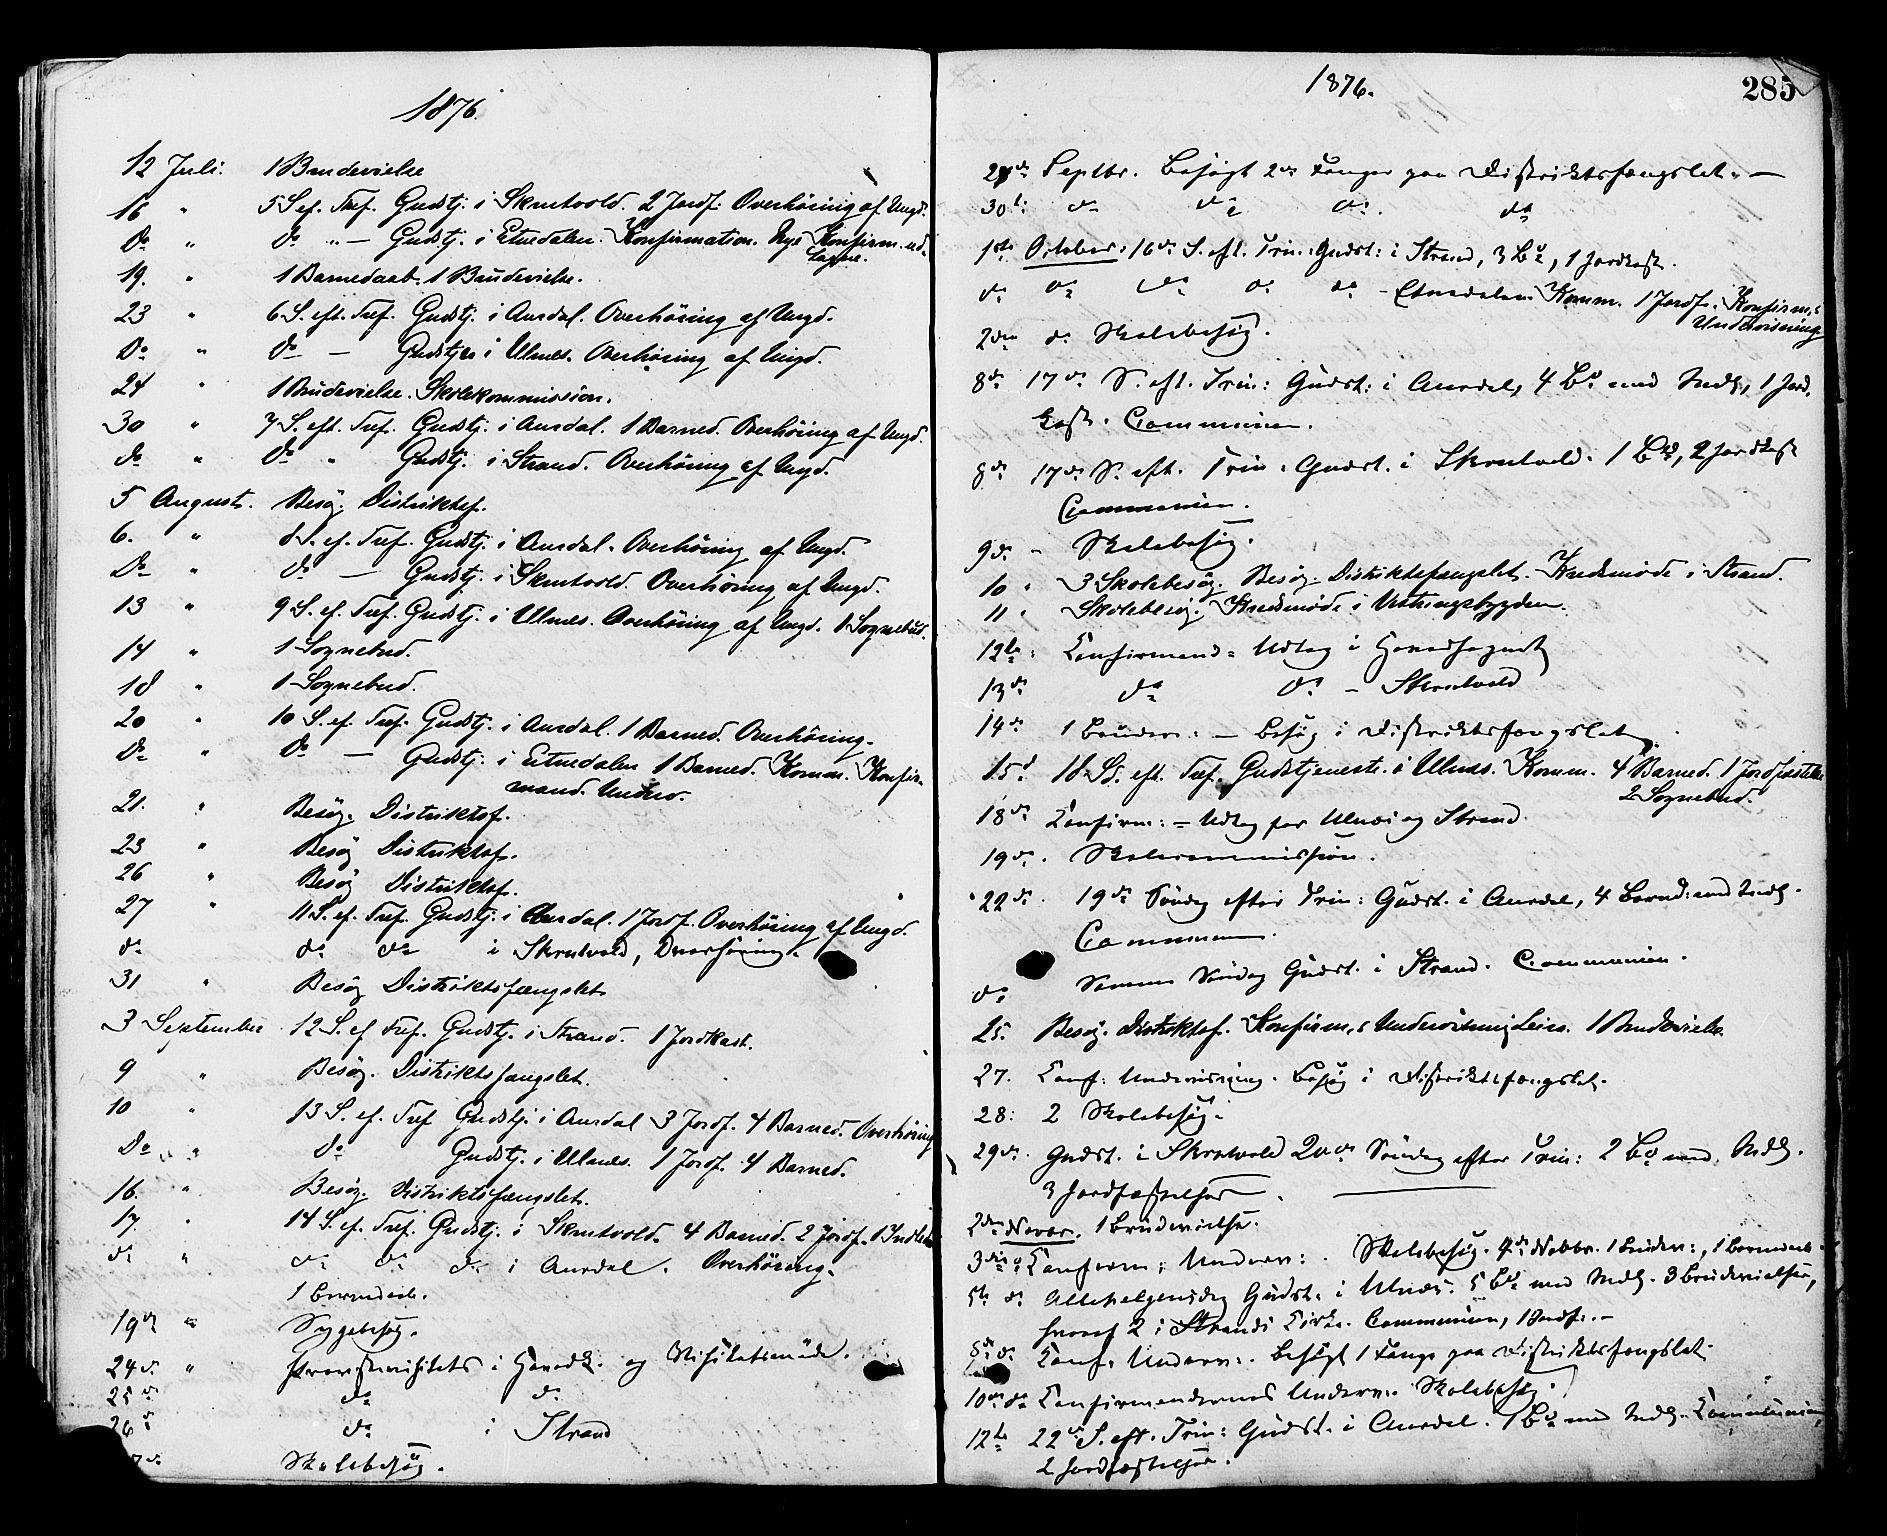 1876.
12 Juli. 1 Brudevielse
16 " 5 S. ef. Tref. Gudstj. i Skrutvold. 2 Jordf. Overhøring af Ungd.
Do " do " — Gudstj. i Etnedalen. Konfirmation. Nye Konfirm. ud-
tagne.
19. " 1 Barnedaab. 1 Brudevielse.
23 " 6 S. eft. Tref. Gudstj. i Aurdal. Overhøring af Ungd.
Do " do — Gudstj. i Ulnes. Overhøring af Ungd.
24 " 1 Brudevielse. Skolekommission.
30 " 7 S. eft. Tref. Gudstj. i Aurdal. 1 Barned. Overhøring af Ungd.
do " do " Gudstj. i Strand. Overhøring af Ungd.
5 August. Besøg. Distriktsf.
6. " 8 S. ef. Tref. Gudstj. i Aurdal. Overhøring af Ungd.
Do " do — Gudstj. i Skrutvold. Overhøring af Ungd.
13 " 9 S. ef. Tref. Gudstj. i Ulnes. Overhøring af Ungd. 1 Sognebud.
14 " 1 Sognebud.
18 " 1 Sognebud.
20 " 10 S. ef. Tref. Gudstj. i Aurdal. 1 Barned. Overhøring.
Do " do — Gudstj. i Etnedalen 1 Barned. Komm. Konfir-
mand. Underv.
21. " Besøg. Distriktsf.
23 " Besøg Distriktsf.
26 " Besøg Distriktsf.
27 " 11 S. ef. Tref. Gudstj. i Aurdal. 1 Jordf. Overhøring af Ungd.
do do do i Skrutvold, Overhøring.
31 " Besøg Distriktsfængslet
3 September 12 S. ef Tref. Gudstj. i Strand. 1 Jordkast.
9 " Besøg. Distriktsfængslet.
10 " 13 S. ef. Tref Gudstj. i Aurdal 3 Jordf. 4 Barned. Overhøring
Do " do Gudstj. i Ulnes. 1 Jordf. 4 Barned.
16. " Besøg. Distriktsfængslet.
17. " 14 S. ef. Tref. Gudstj. i Skrutvold. 4 Barned. 2 Jordf. 1 Indled.
do " do do do i Aurdal. Overhøring.
1 Barnedaab.
19de " Sygebesøg.
24de " Provstevisitats i Hovedk. og Visitatsmøde.
25de do do
26de do i Strand
Skolebesøg.
1876.
285
Septbr. Besøgt 2de Fanger paa Distriktsfængslet. —
30te do do do. do
1ste October. 16de S. eft. Trin: Gudst: i Strand, 3 Bd, 1 Jordkast.
do do do do do - Etnedalen Komm. 1 Jordf. Konfirm.
Undervisning
2den do Skolebesøg.
8de 17de S. eft. Trin: Gudst: i Aurdal, 4 Bd med Indl., 1 Jord.
kast. Communion.
8de 17de S. eft. Trin: Gudst. i Skrutvold. 1 Bd, 2 Jordkast
Communion.
9de - Skolebesøg.
10 " 3 Skolebesøg. Besøg Distriktsfængslet. Kredsmøde i Strand.
11 " Skolebesøg. Kredsmøde i Vestringsbygden.
12te: Confirmand-Udtag i Hovedsognet
13de do do - Skrutvold
14de 1 Brudev: - Besøg i Distriktsfængslet.
15d 18 S. eft. Tref. Gudstjeneste i Ulnes. Komm. 4 Barned. 1 Jordfæstelse
2 Sognebud.
18de Confirm: - Udtag for Ulnes og Strand.
19de. Skolecommission.
22de. 19de Søndag efter Trin: Gudst. i Aurdal, 4 Barned: med Indl.
Communion.
do Samme Søndag Gudst. i Strand. Communion.
25. Besøg. Distriktsf. Konfirm. Undervisning Leira. 1 Brudevielse
27. Conf: Undervisning. Besøg i Distriktsfængslet.
28: 2 Skolebesøg.
29de. Gudst. i Skrutvold 20de Søndag efter Trin: 2 Bd med Indl.
3 Jordfæstelser.
2den Novbr. 1 Brudevielse.
3die do Confirm: Underv:. Skolebesøg. 4de Novbr. 1 Brudev:, 1 Barnedaab.
5te do Allehelgensdag Gudst. i Ulnes. 5 Bd med Indl. 3 Brudevielser,
hvoraf 2 i Strands Kirke. Communion, 1 Jordf. -
8de do Conf. Underv:. Besøgt 1 Fange paa Distriktsfængslet.
10de do Confirmandernes Underv:. Skolebesøg.
12te 22de S. eft. Trin: Gudst. i Aurdal. 1 Bd med Indl. Communion,
2 Jordfæstelser.